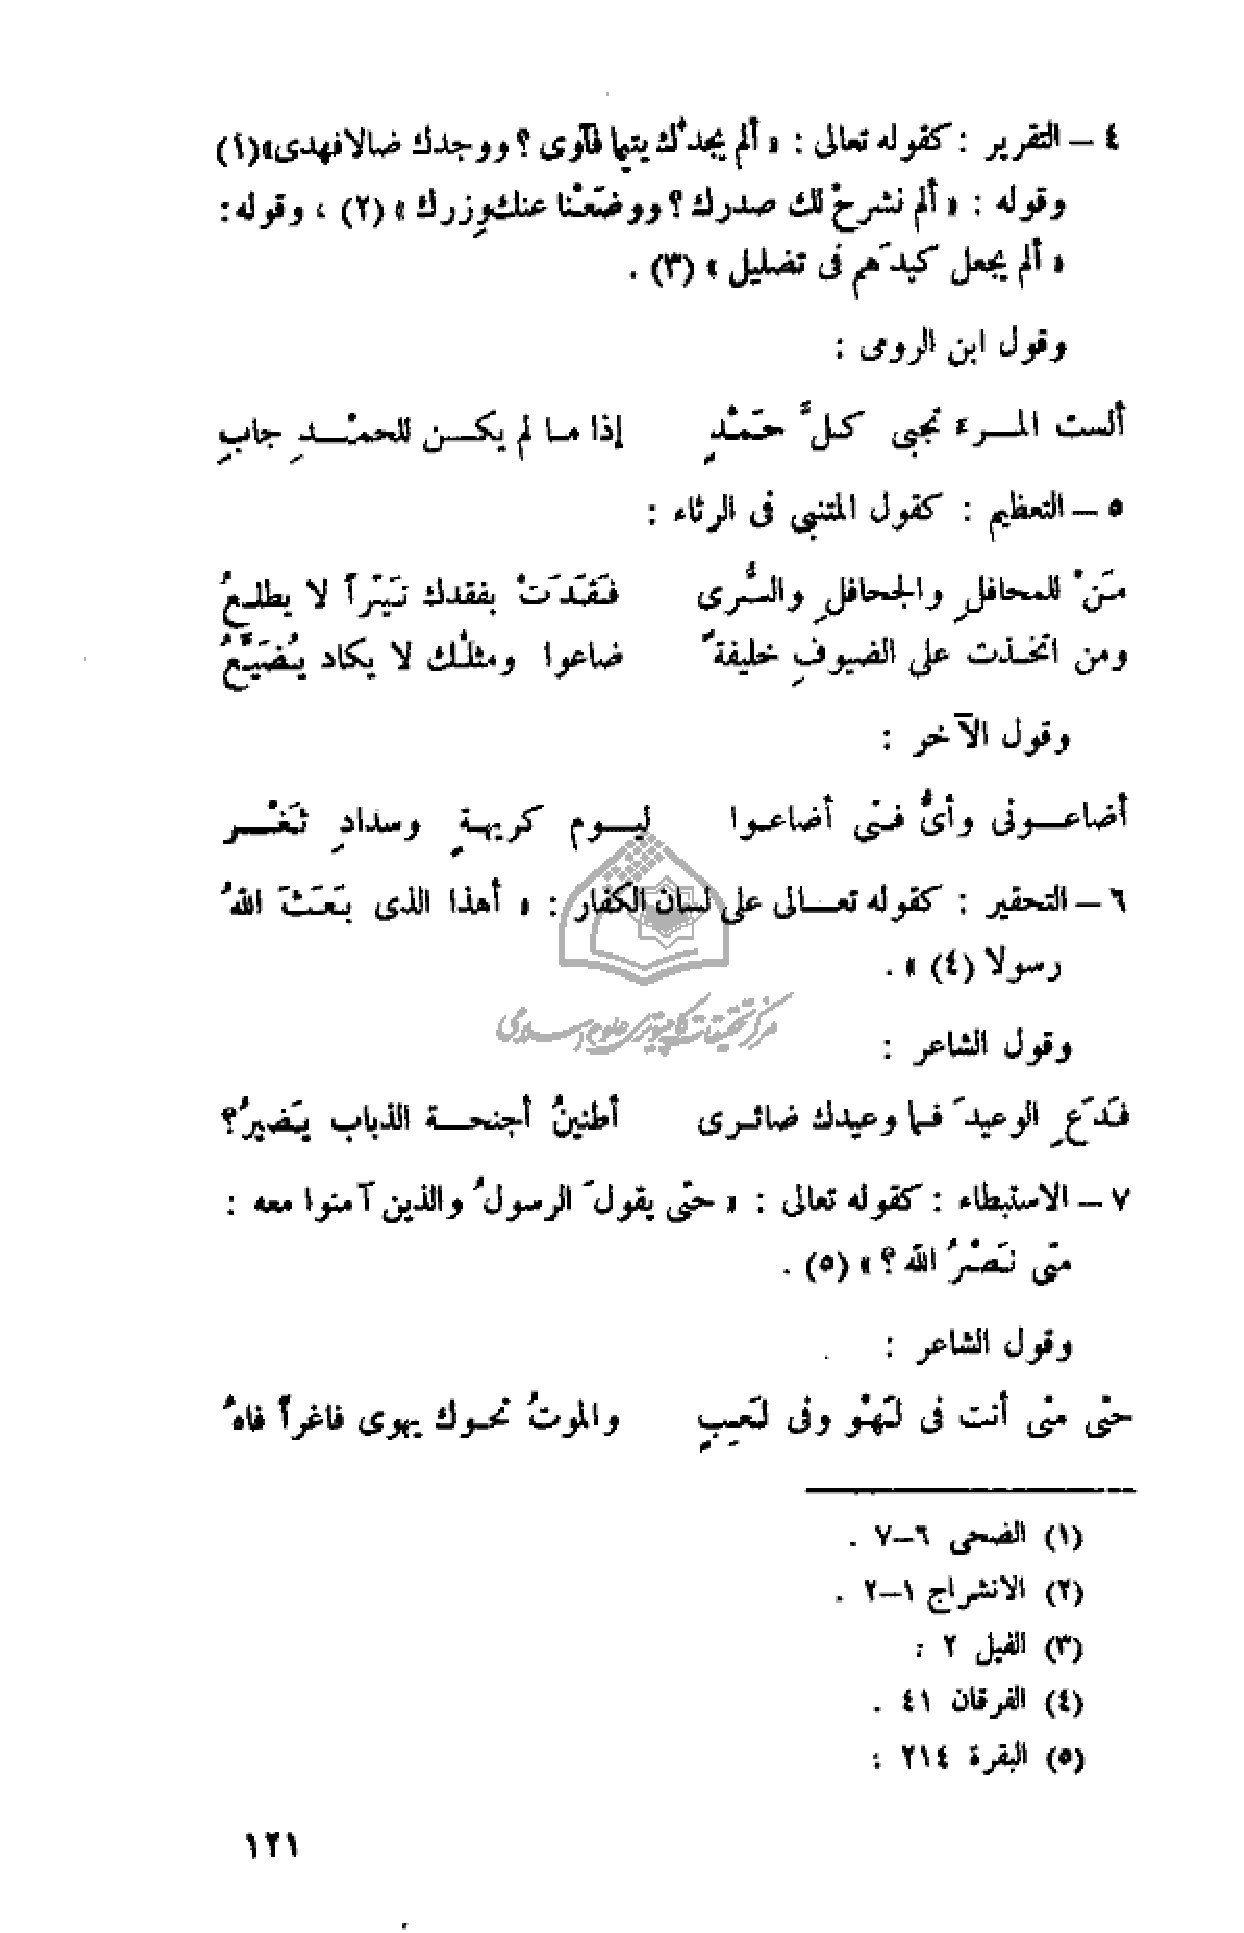 ٤ – التقرير : كقوله تعالى : « ألم يجدْك يتيما فآوى ؟ ووجدك ضالا فهدى»(١)
وقوله : « ألم نشرحْ لك صدرك ؟ ووضَعْنا عنك وِزرك » (٢) ، وقوله :
« ألم يجعل كيدَهم فى تضليل » (٣) .
وقول ابن الرومى :
ألست المــرء تجبى كلَّ حَمْدٍ إذا مـا لم يكــن للحمْــدِ جابِ
٥ – التعظيم : كقول المتنبى فى الرثاء :
مَنْ للمحافلِ والجحافلِ والسُّرى فَقَدَتْ بفقدك نَيّراً لا يطلعُ
ومن اتخـذت على الضيوفِ خليفةً ضاعوا ومثلُك لا يكاد يُضَيَّعُ
وقول الآخر :
أضاعــونى وأىُّ فتى أضاعوا ليــوم كريهةٍ وسدادِ ثَغْــر
٦ – التحقير : كقوله تعــالى على لسان الكفار : « أهذا الذى بَعَثَ اللهُ
رسولا (٤) » .
وقول الشاعر :
فَدَعِ الوعيدَ فما وعيدك ضائرى أطنينُ أجنحــة الذباب يَضيرُ؟
٧ – الاستبطاء : كقوله تعالى : « حتّى يقولَ الرسولُ والذين آمنوا معه :
متى نَصْرُ الله ؟ » (٥) .
وقول الشاعر :
حتّى متى أنت فى لَهْو وفى لَعِبٍ والموتُ نحوك يهوى فاغراً فاهُ
(١) الضحى ٦–٧ .
(٢) الانشراج ١–٢ .
(٣) الفيل ٢ :
(٤) الفرقان ٤١ .
(٥) البقرة ٢١٤ :
١٢١
مركز تحقيقات كامپيوترى علوم اسلامى